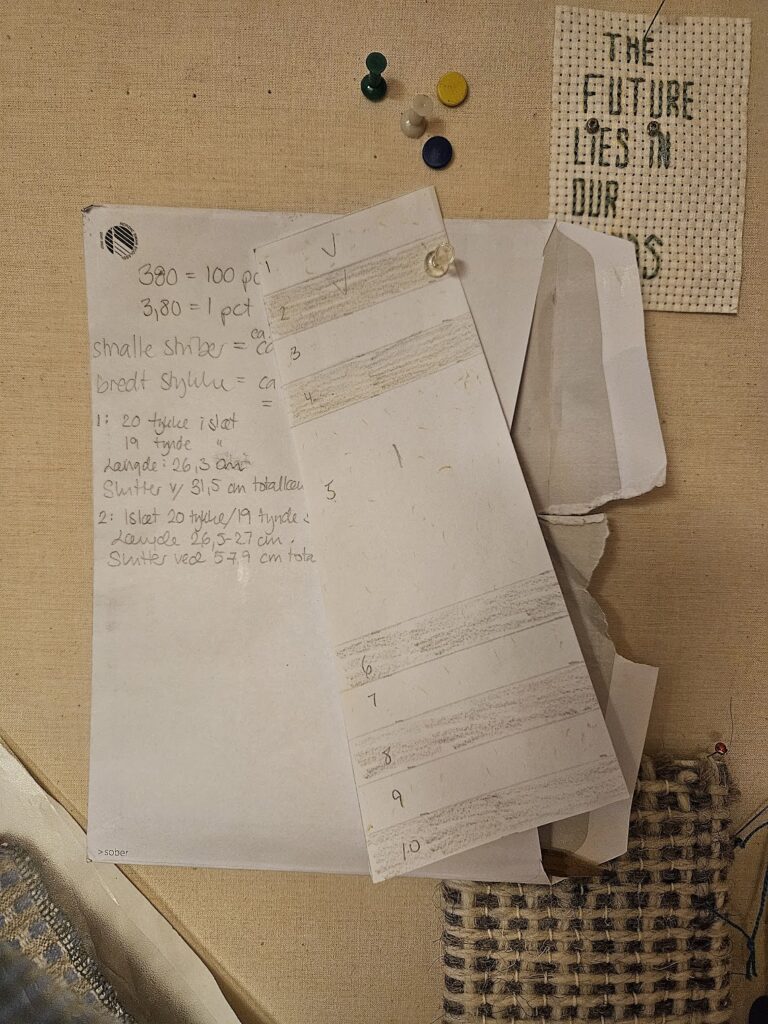 THE
FUTURE
LIES IN
OUR
380 = 100 pc
3,80 = 1 pct
smalle striber = ca.
bredt stykke = ca
=
1: 20 tykke islæt
19 tynde "
Længde: 26,3 cm
Slutter v/ 31,5 cm
2: Islæt 20 tykke/19 tynde
Længde 26,5-27 cm.
Slutter ved 57,9 cm
1
2
3
4
5
6
7
8
9
10
>sober